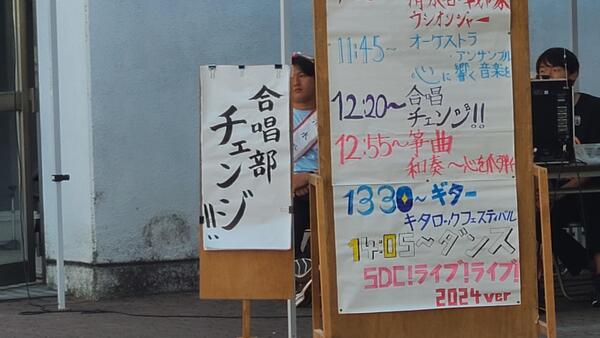 合唱部
チェンジ!!!
ウシオンジャー
11:45〜オーケストラ
・アンサンブル
心に響く音楽を
12:20〜合唱
チェンジ!!
12:55〜筝曲
和奏〜心を爪弾く
13:30〜ギター
キタロックフェスティバル
14:05〜ダンス
SDC!ライブ!ライブ!
2024ver